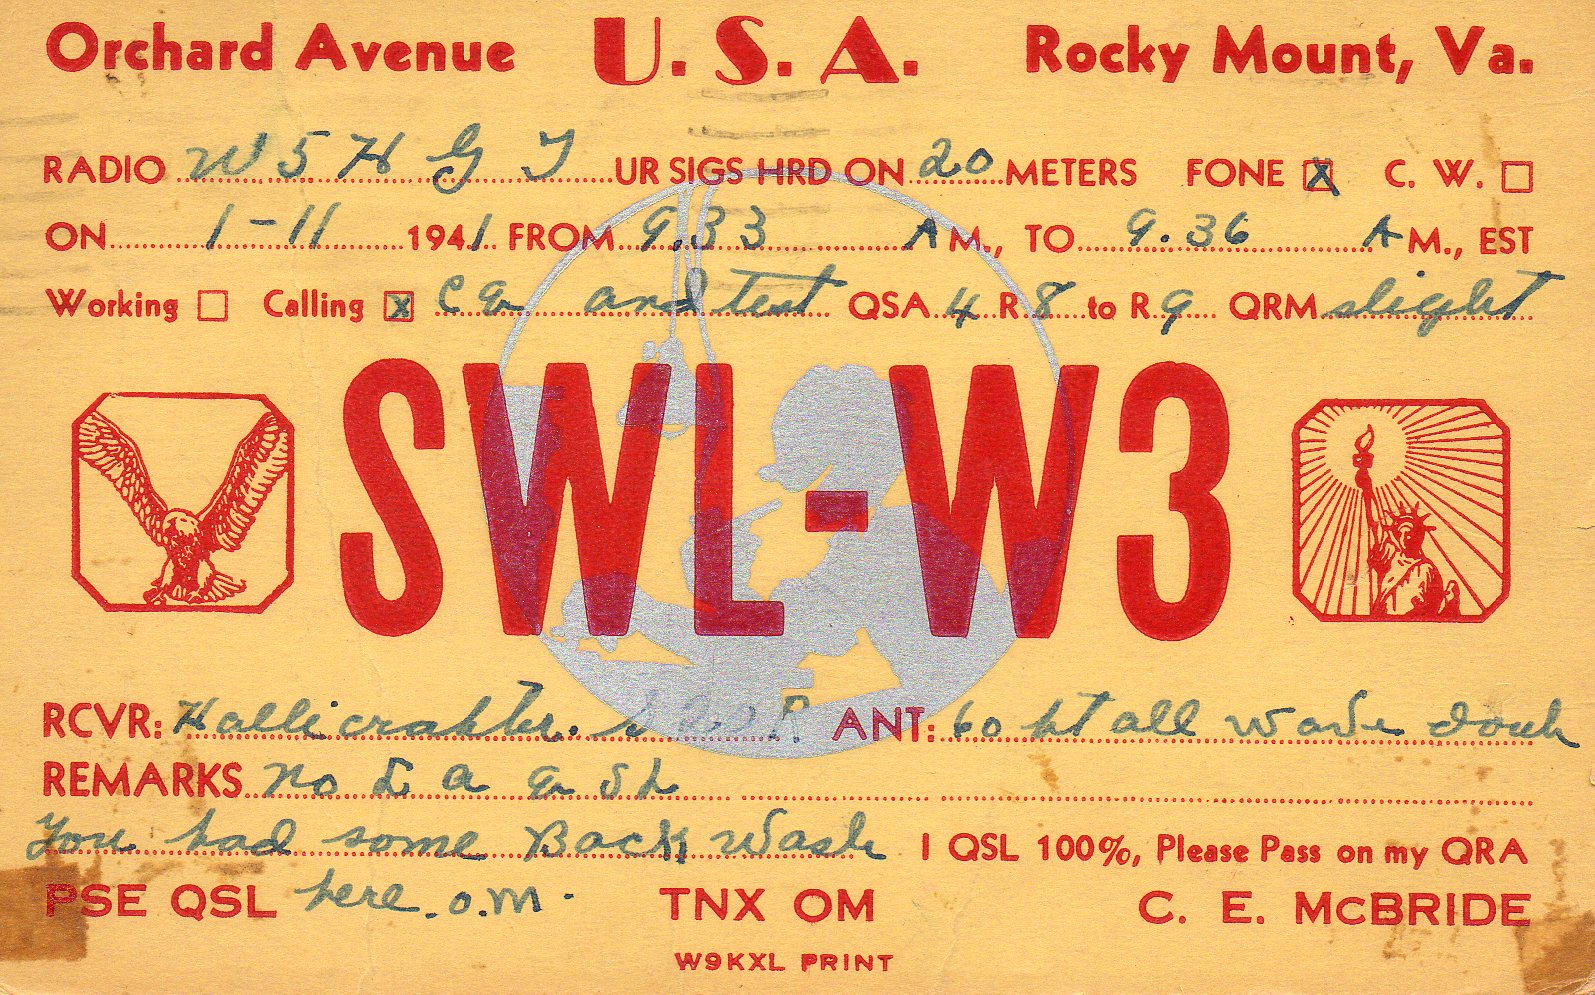 Orchard Avenue U. S. A. Rocky Mount, Va.
RADIO W5HGT UR SIGS HRD ON 20 METERS FONE X C. W.
ON 1-11 1941 FROM 9.33 A M., TO 9.36 A M., EST
Working Calling X CQ and test QSA 4 R 8 to R 9 QRM slight
SWL-W3
RCVR: Hallicrafter. S20R ANT: 60 ft all wave doub
REMARKS no
You had some Back Wash I QSL 100%, Please Pass on my QRA
PSE QSL here. o.m. TNX OM C. E. McBRIDE
W9KXL PRINT